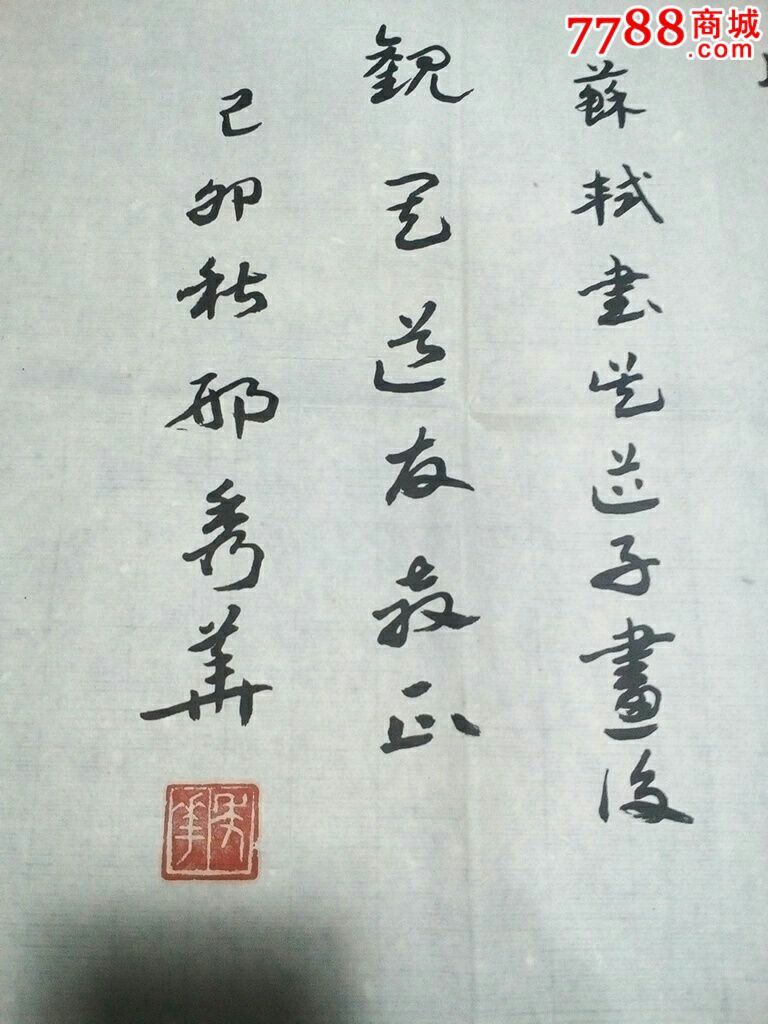 7788商城
.com
蘇軾書吳道子畫後
觀見道友教正
己卯秋邢秀華
秀華